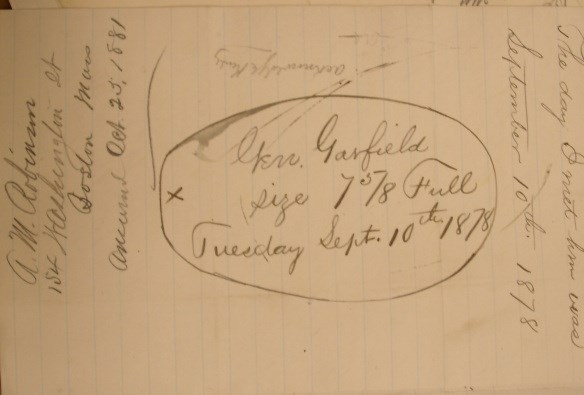 Gen. Garfield
size 7 5/8 Full
Tuesday Sept. 10th 1878
The day I met him was
September 10th. 1878
A. M. Robinson
Washington St
Boston Mass
Answered Oct 25, 1881